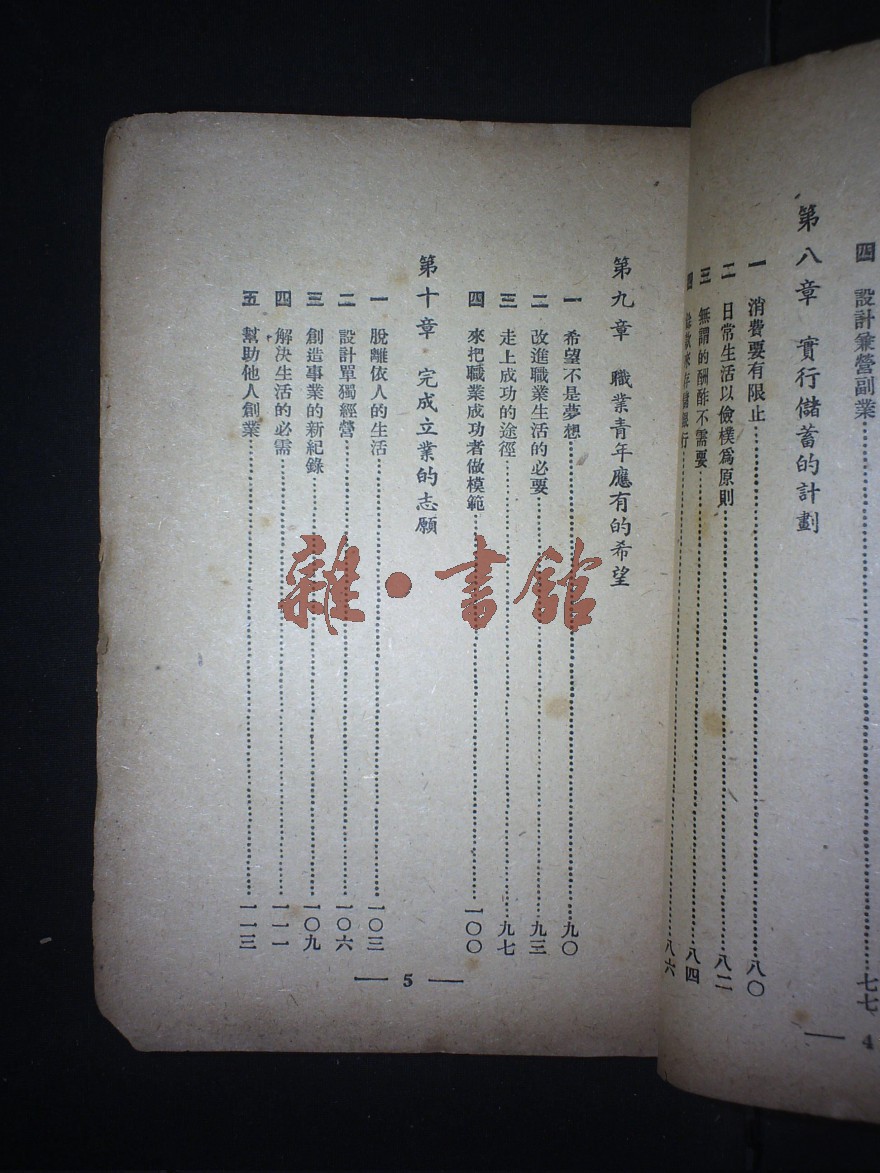 四 設計兼營副業……七七
第八章 實行儲蓄的計劃
一 消費要有限止……八〇
二 日常生活以儉樸爲原則……八二
三 無謂的酬酢不需要……八四
四 餘款來存儲銀行……八六
4
第九章 職業青年應有的希望
一 希望不是夢想……九〇
二 改進職業生活的必要……九三
三 走上成功的途徑……九七
四 來把職業成功者做模範……一〇〇
第十章 完成立業的志願
一 脫離依人的生活……一〇三
二 設計單獨經營……一〇六
三 創造事業的新紀錄……一〇九
四 解決生活的必需……一一一
五 幫助他人創業……一一三
5
雜·書館